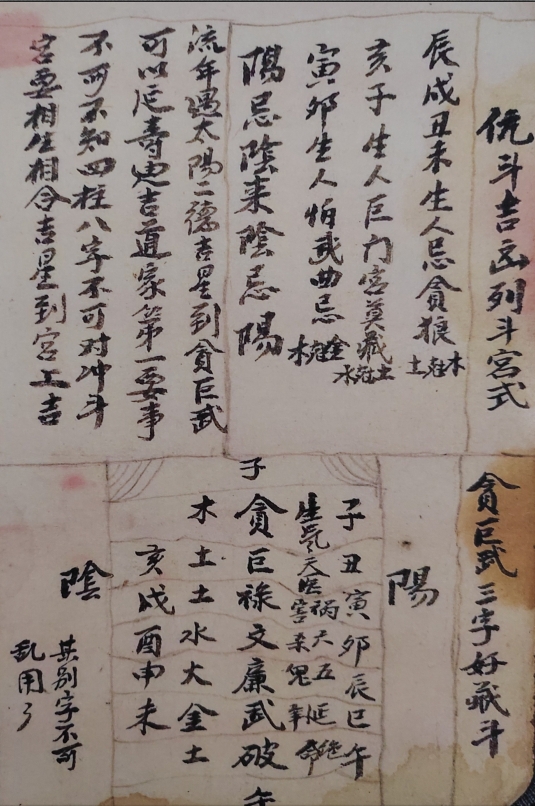 斗吉凶列斗宮式
辰戌丑未生人忌貪狼 木尅土
亥子生人巨门宮莫藏 土尅水
寅卯生人怕武曲忌 金尅木
陽忌陰来陰忌陽
流年遇太陽二德吉星到貪巨武
可以延寿迪吉道家第一要事
不可不知四柱八字不可对冲斗
宮要相生相合吉星到宮上吉
貪巨武三字好藏斗
陽
子丑寅卯辰巳午
生氣天医祸害六杀五鬼延年绝命
子
貪巨禄文廉武破
午
木土土水火金土
亥戌酉申未
陰
其别字不可
乱用了